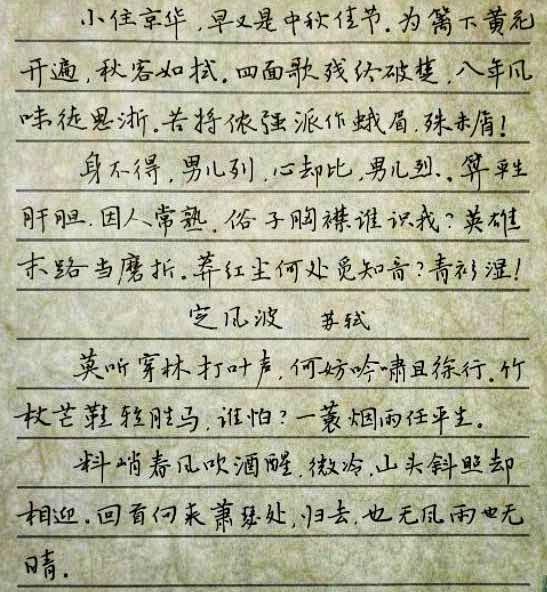 小住京华,早又是中秋佳节.为篱下黄花
开遍,秋容如拭.四面歌残终破楚,八年风
味徒思浙.苦将侬强派作蛾眉,殊未屑!
身不得,男儿列,心却比,男儿烈.算平生
肝胆.因人常熟.俗子胸襟谁识我?英雄
末路当磨折.莽红尘何处觅知音?青衫湿!
定风波 苏轼
莫听穿林打叶声,何妨吟啸且徐行.竹
杖芒鞋轻胜马,谁怕?一蓑烟雨任平生。
料峭春风吹酒醒,微冷,山头斜照却
相迎.回首向来萧瑟处,归去,也无风雨也无
晴.